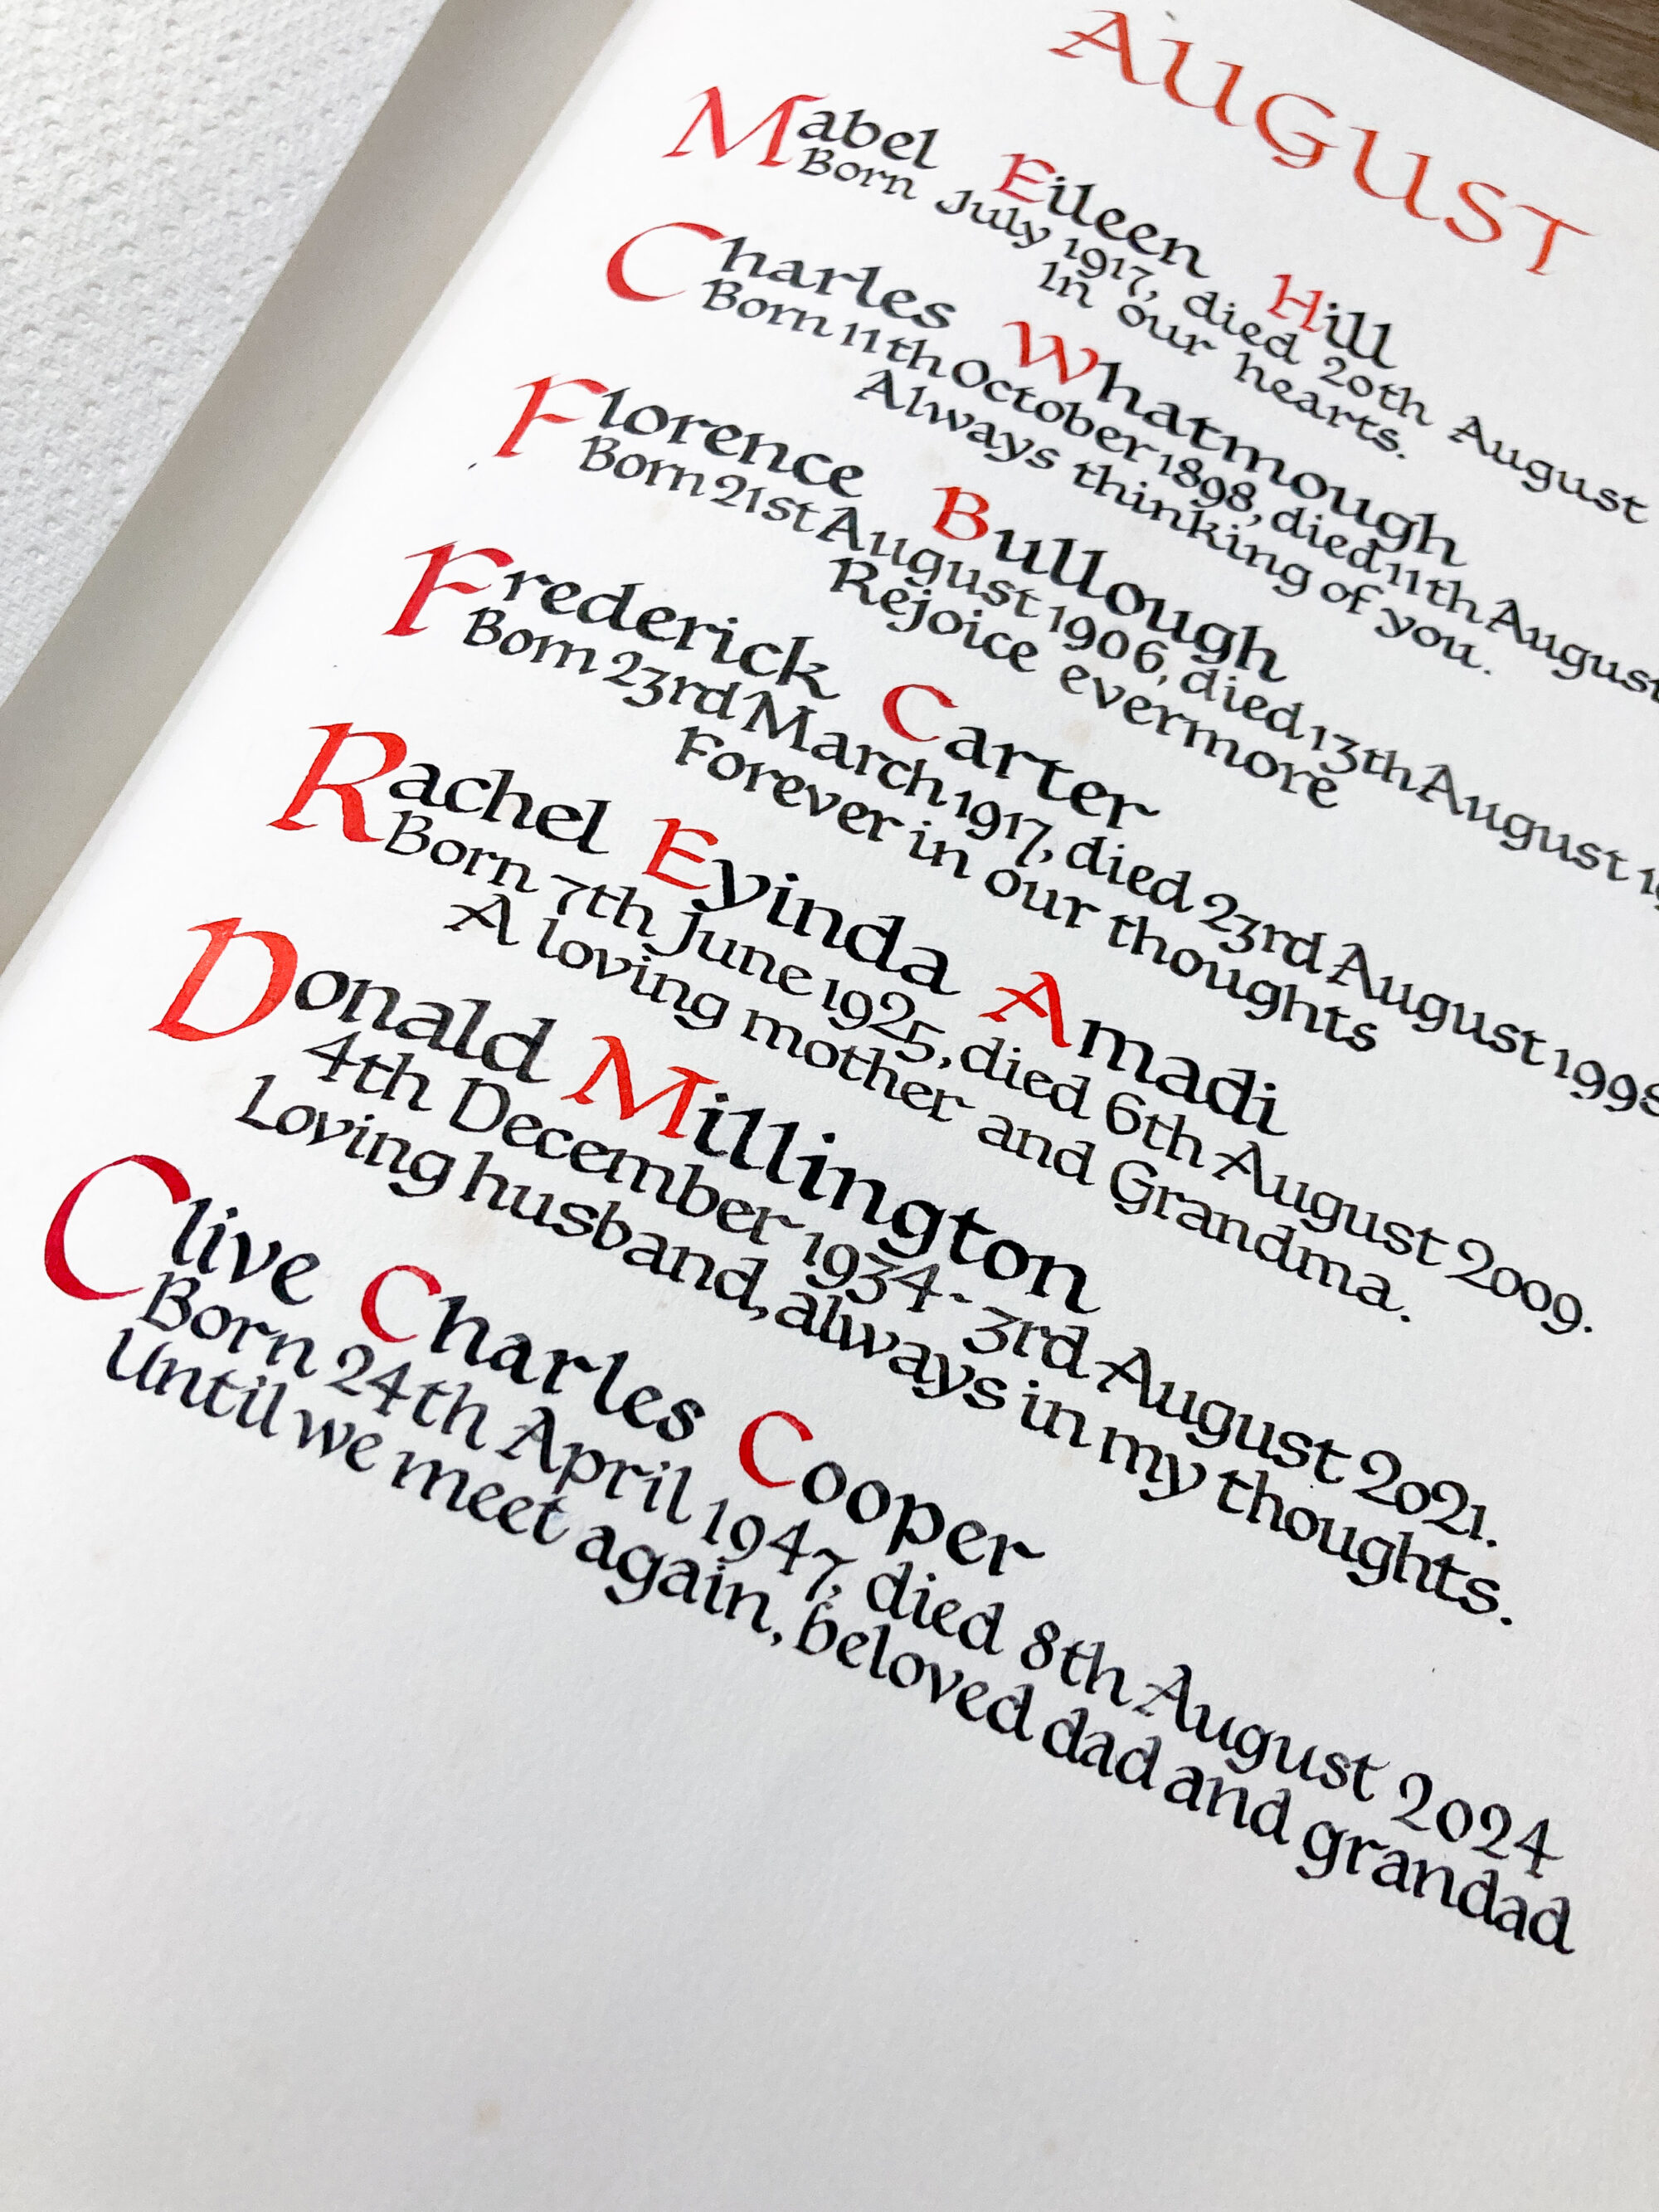 AUGUST
Mabel Eileen Hill
Born July 1917, died 20th August
In our hearts.
Charles Whatmough
Born 11th October 1898, died 11th August
Always thinking of you.
Florence Bullough
Born 21st August 1906, died 13th August
Rejoice evermore
Frederick Carter
Born 23rd March 1917, died 23rd August 1998
Forever in our thoughts
Rachel Eyinda Amadi
Born 7th June 1925, died 6th August 2009.
A loving mother and Grandma.
Donald Millington
4th December 1934 - 3rd August 2021.
Loving husband, always in my thoughts.
Clive Charles Cooper
Born 24th April 1947, died 8th August 2024
Until we meet again, beloved dad and grandad